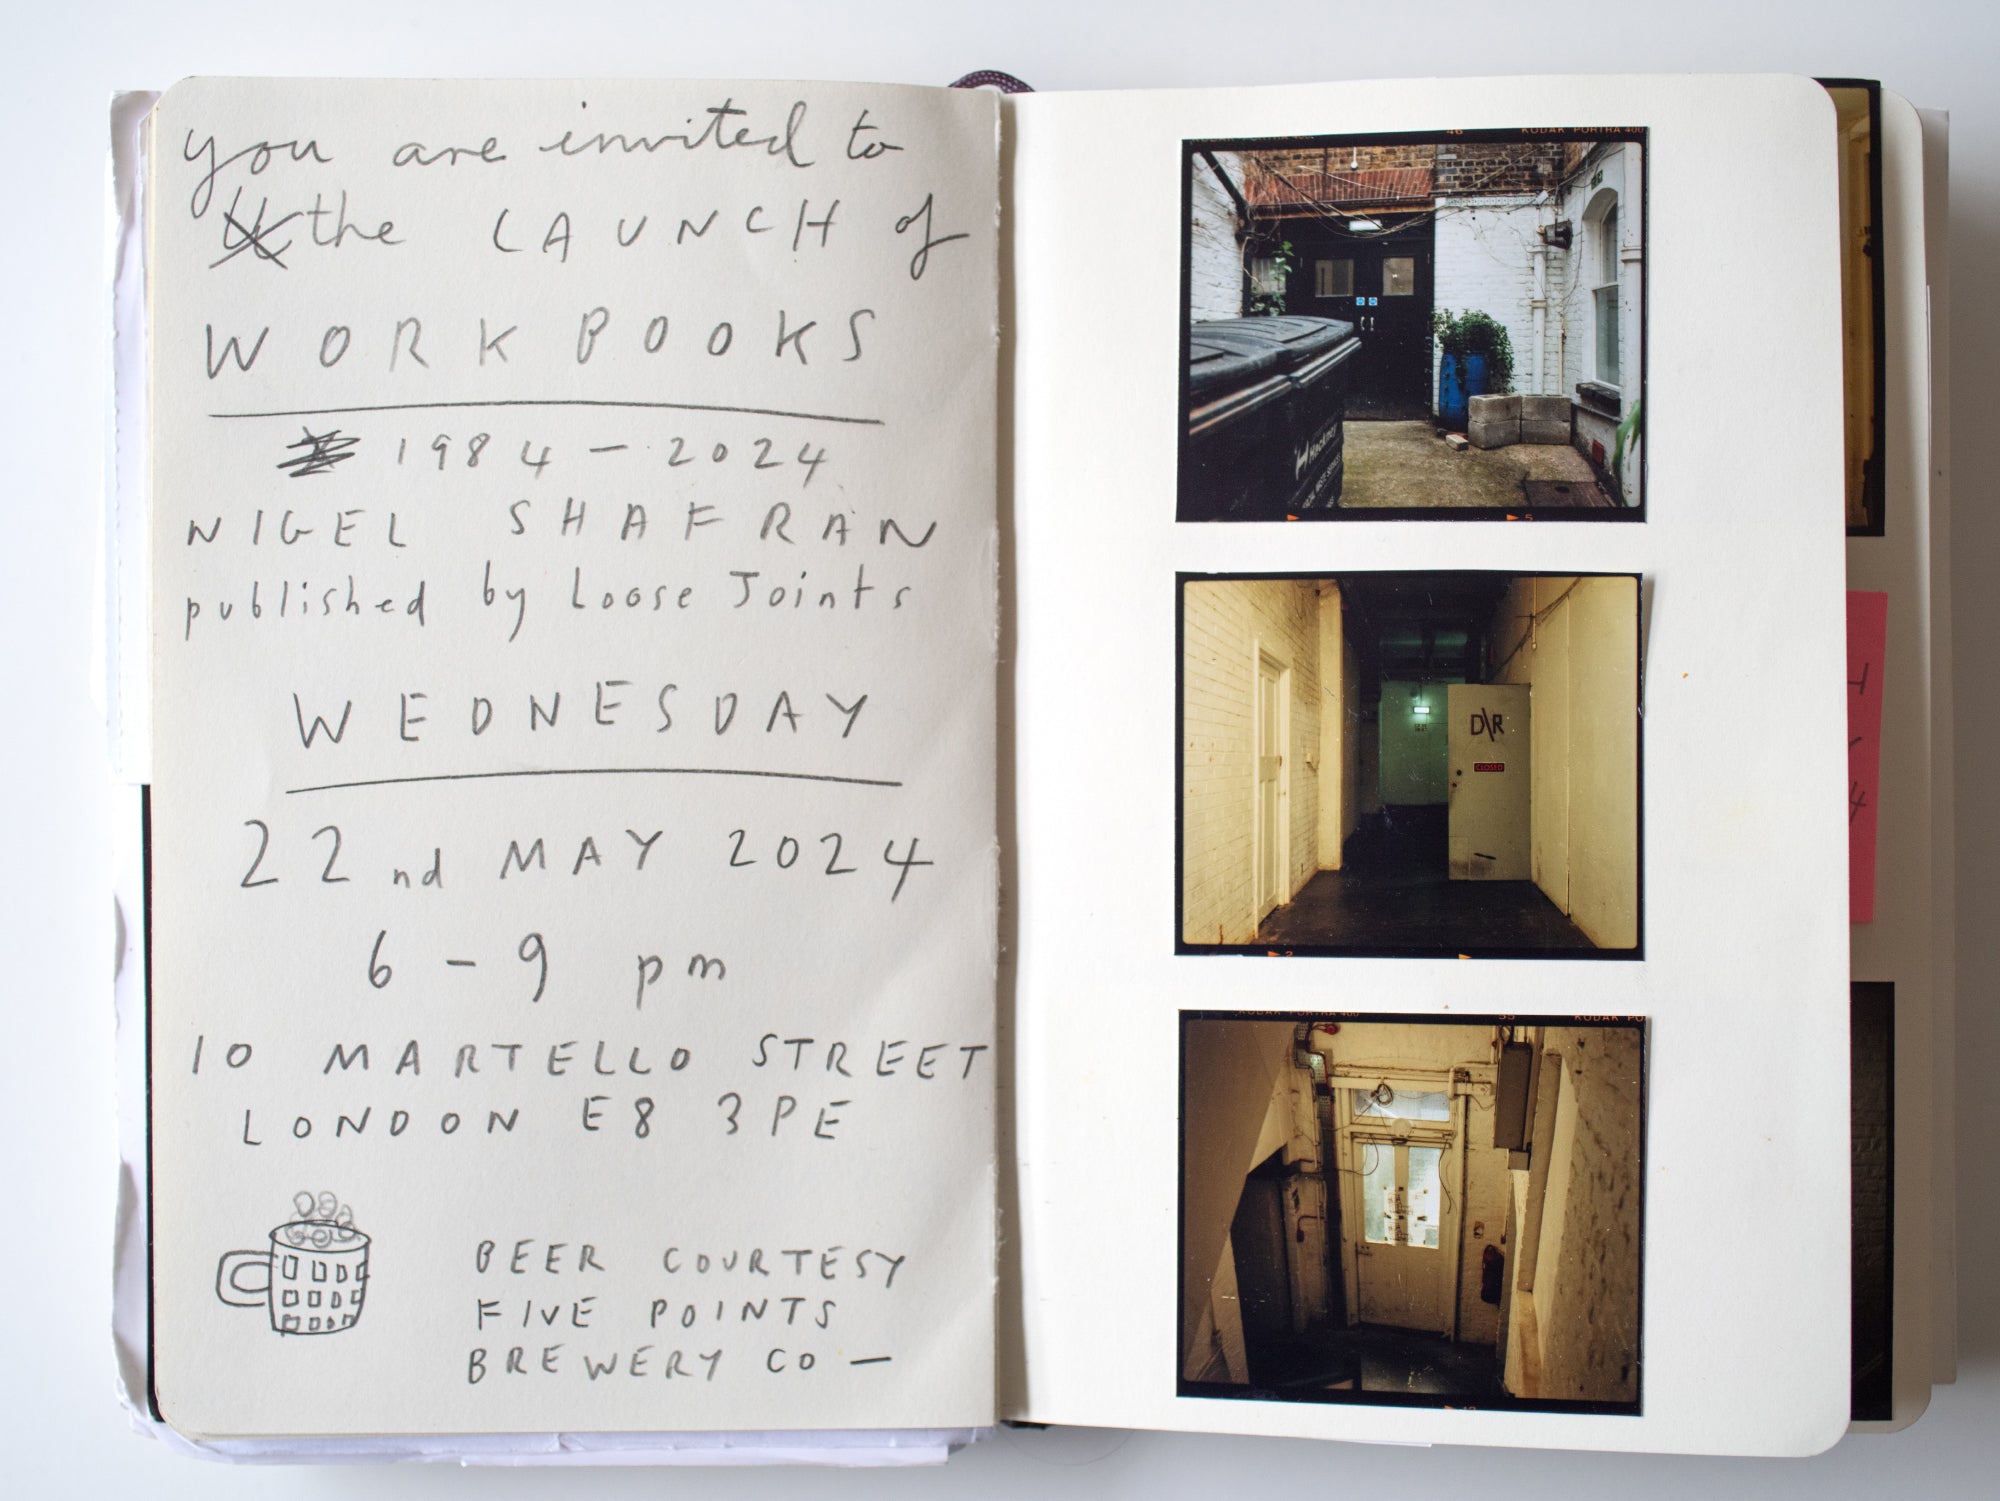 you are invited to
the LAUNCH of
WORKBOOKS
1984 – 2024
NIGEL SHAFRAN
published by Loose Joints
WEDNESDAY
22nd MAY 2024
6 – 9 pm
10 MARTELLO STREET
LONDON E8 3PE
BEER COURTESY
FIVE POINTS
BREWERY CO –
46 KODAK PORTRA 400
Hackney
5
D\R
CLOSED
2
KODAK PORTRA 400 55 KODAK PO